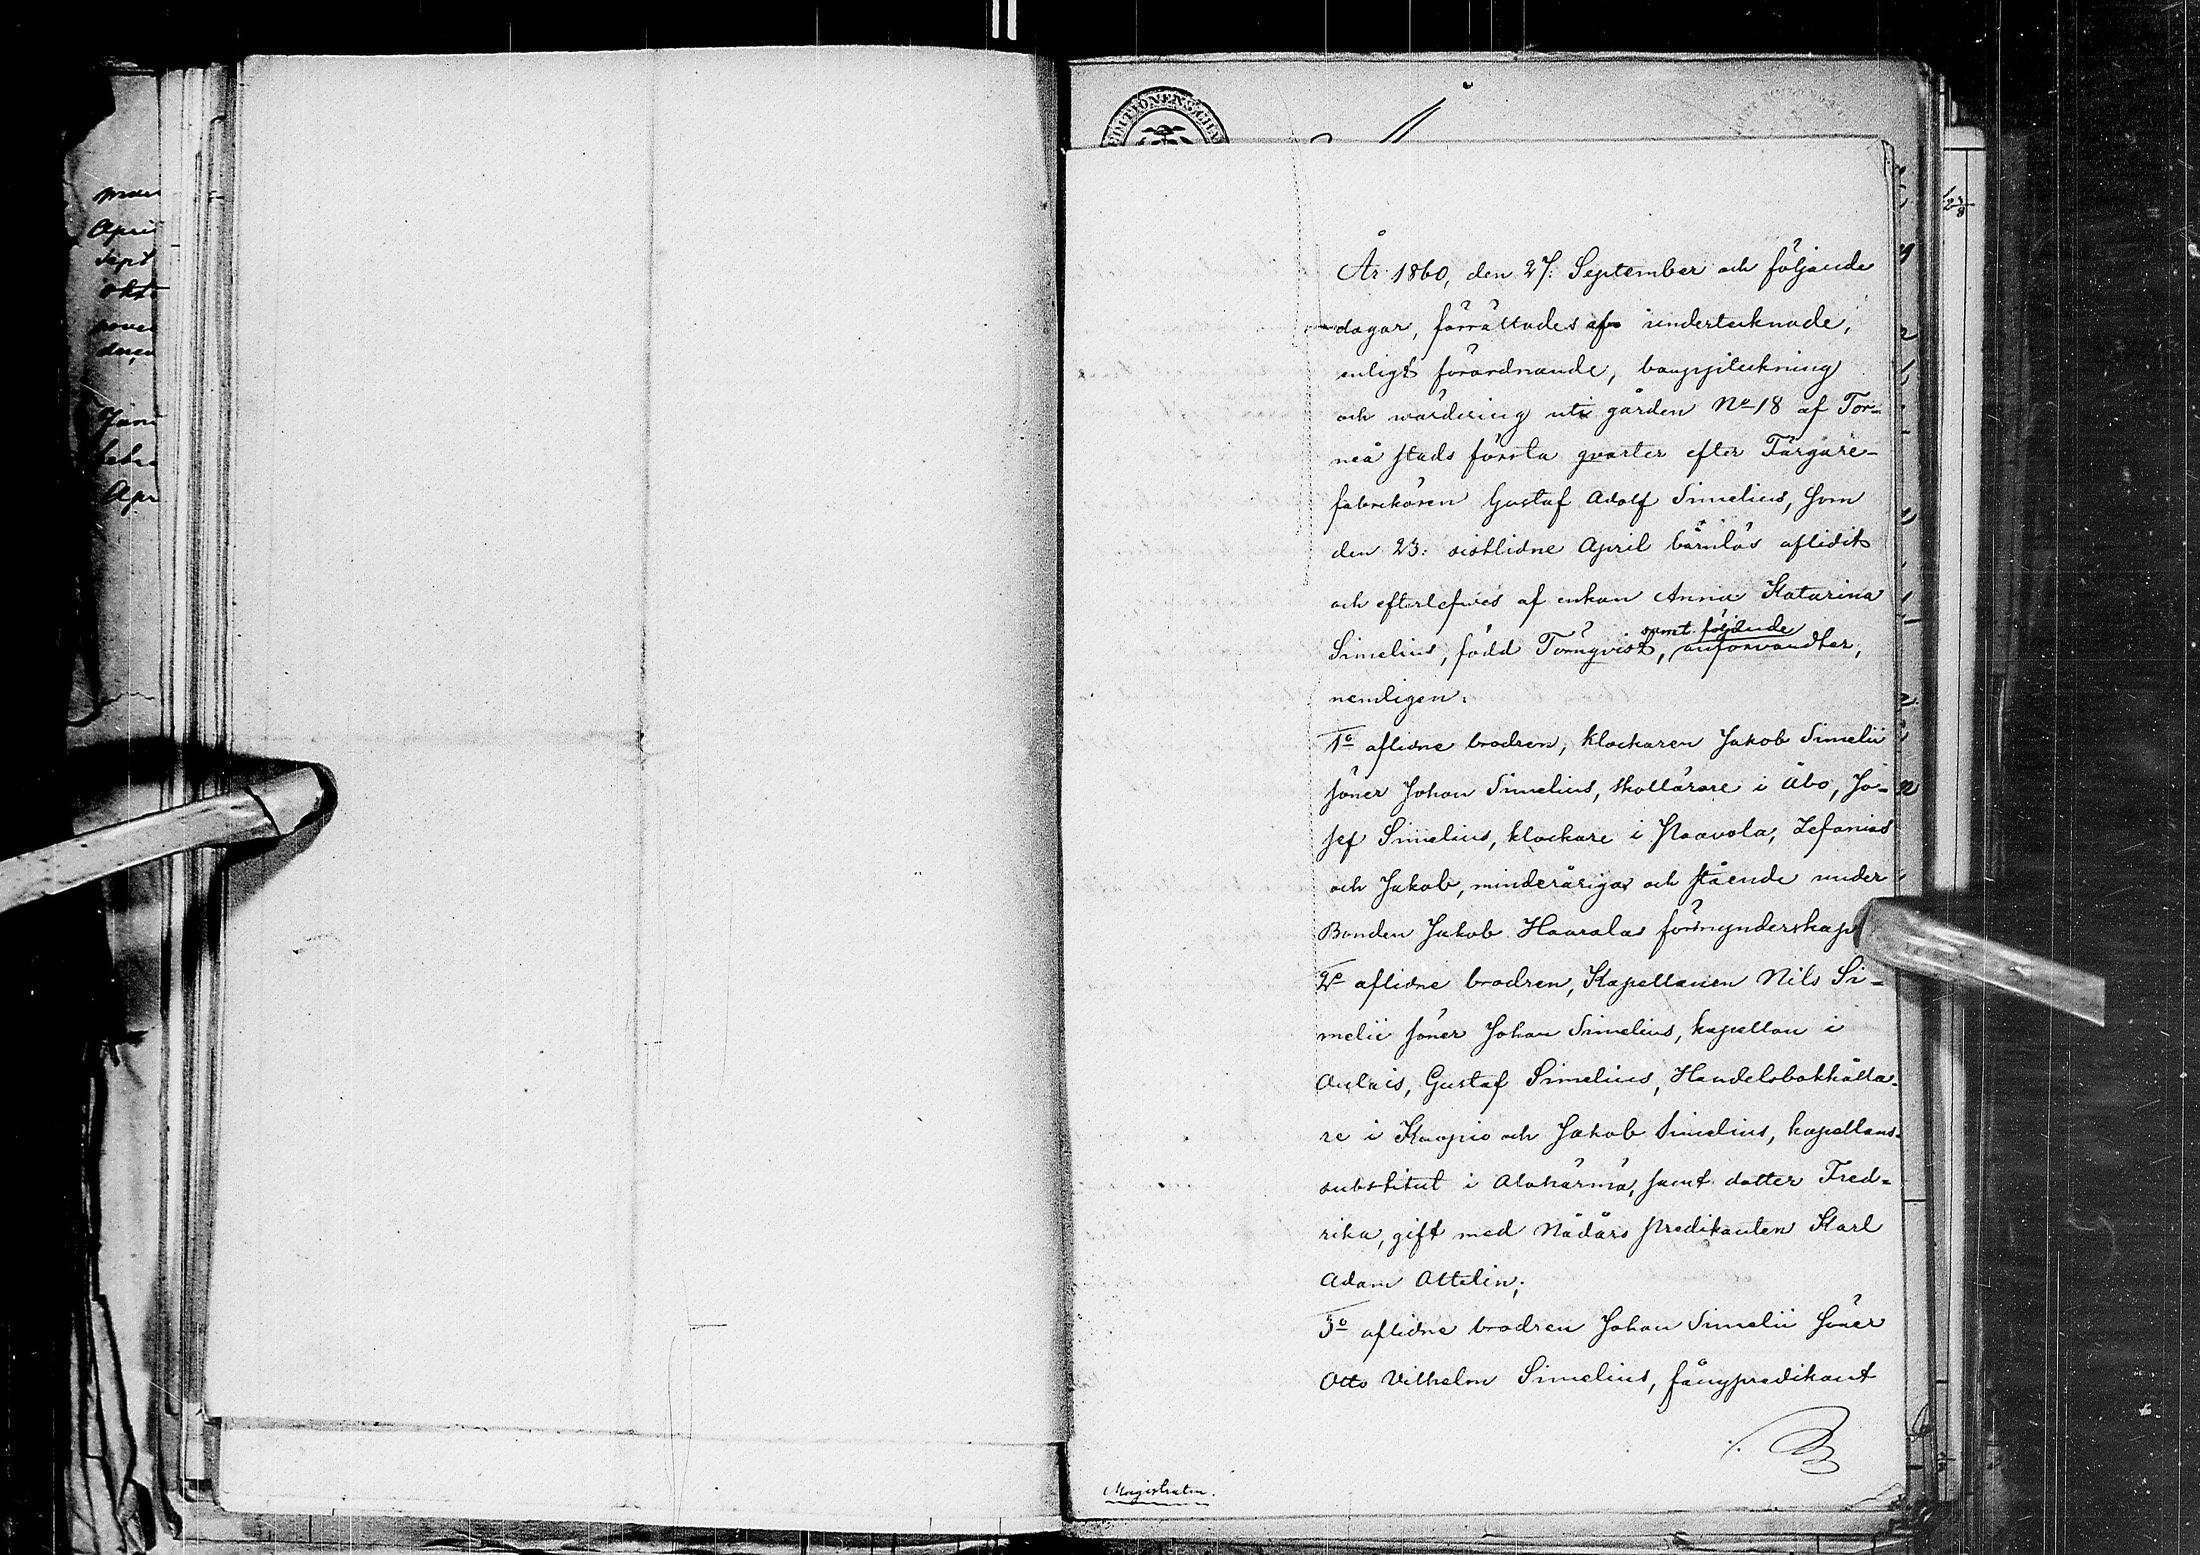 År 1860, den 27. September och följande
dagar, förrättades af undertecknade,
enligt förordnande, bouppteckning
och wärdering uti gården No 18 af Tor-
neå stads första qvarter efter Färgare-
fabrikören Gustaf Adolf Simelius, som
den 23: sistlidne April barnlös aflidit
och efterlefwes af enkan Anna Katarina
samt följande
Simelius, född Törnqvist, anförvandter,
nemligen:
1o aflidne brodren, klockaren Jakob Simelii
söner Johan Simelius, skollärare i Åbo, Jo-
sef Simelius, klockare i Paavola, Zefanias
och Jakob, minderåriga och stående under
Bonden Jakob Haaralas förmynderskap
2o aflidne brodren, Kapellanen Nils Si-
melii söner Johan Simelius, kapellan i
Gustaf Simelius, Handelsbokhålla-
re i Kuopio och Jakob Simelius, kapellans-
substitut i Alahärmä, samt dotter Fred-
rika, gift med Nådårs predikanten Karl
Adam Attelin;
3o aflidne brodren Johan Simelii söner
Otto Vilhelm Simelius, fångpredikant
Magistraten.
Apri
Sept